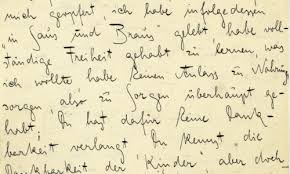 mich geopfert, ich habe infolgedessen
"in Saus und Braus" gelebt, habe voll-
ständige Freiheit gehabt zu lernen, was
ich wollte, habe keinen Anlass zu Nahrungs-
sorgen, also zu Sorgen überhaupt ge-
habt; Du hast dafür keine Dank-
barkeit verlangt, Du kennst die
Dankbarkeit der Kinder" aber doch